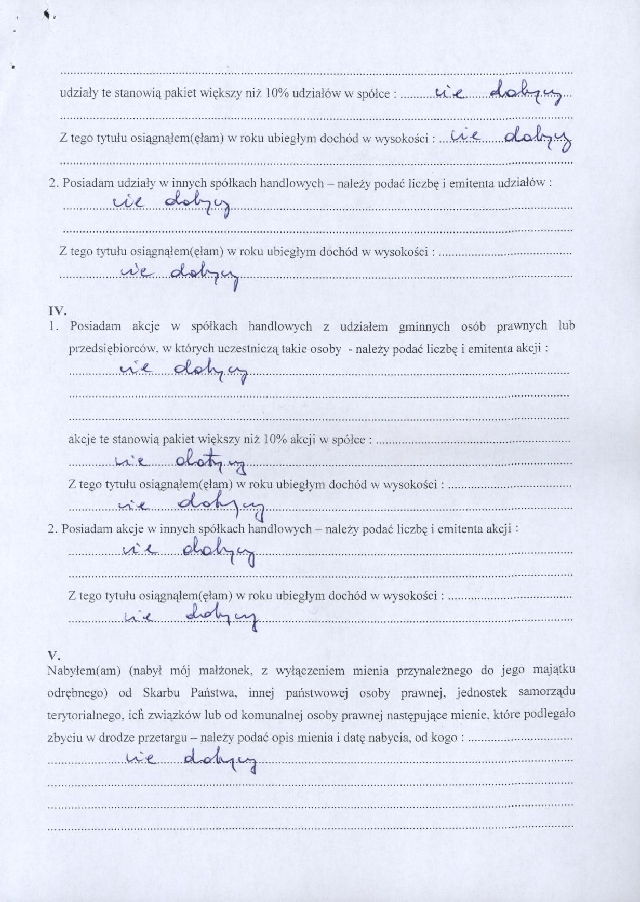 udziały te stanowią pakiet większy niż 10% udziałów w spółce : nie dotyczy
Z tego tytułu osiągnąłem(ęłam) w roku ubiegłym dochód w wysokości : nie dotyczy
2. Posiadam udziały w innych spółkach handlowych – należy podać liczbę i emitenta udziałów :
nie dotyczy
Z tego tytułu osiągnąłem(ęłam) w roku ubiegłym dochód w wysokości :
nie dotyczy
IV.
1. Posiadam akcje w spółkach handlowych z udziałem gminnych osób prawnych lub
przedsiębiorców, w których uczestniczą takie osoby - należy podać liczbę i emitenta akcji :
nie dotyczy
akcje te stanowią pakiet większy niż 10% akcji w spółce :
nie dotyczy
Z tego tytułu osiągnąłem(ęłam) w roku ubiegłym dochód w wysokości :
nie dotyczy
2. Posiadam akcje w innych spółkach handlowych – należy podać liczbę i emitenta akcji :
nie dotyczy
Z tego tytułu osiągnąłem(ęłam) w roku ubiegłym dochód w wysokości :
nie dotyczy
V.
Nabyłem(am) (nabył mój małżonek, z wyłączeniem mienia przynależnego do jego majątku
odrębnego) od Skarbu Państwa, innej państwowej osoby prawnej, jednostek samorządu
terytorialnego, ich związków lub od komunalnej osoby prawnej następujące mienie, które podlegało
zbyciu w drodze przetargu – należy podać opis mienia i datę nabycia, od kogo :
nie dotyczy